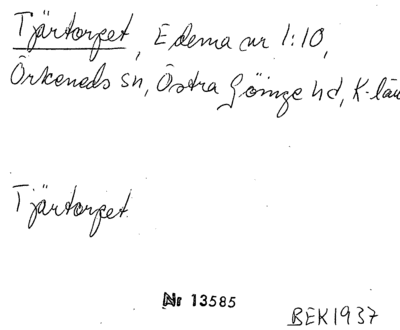 Tjärtorpet, Edema nr 1:10,
Örkeneds sn, Östra Göinge hd, K-län
Tjärtorpet
Nr 13585
BEK1937